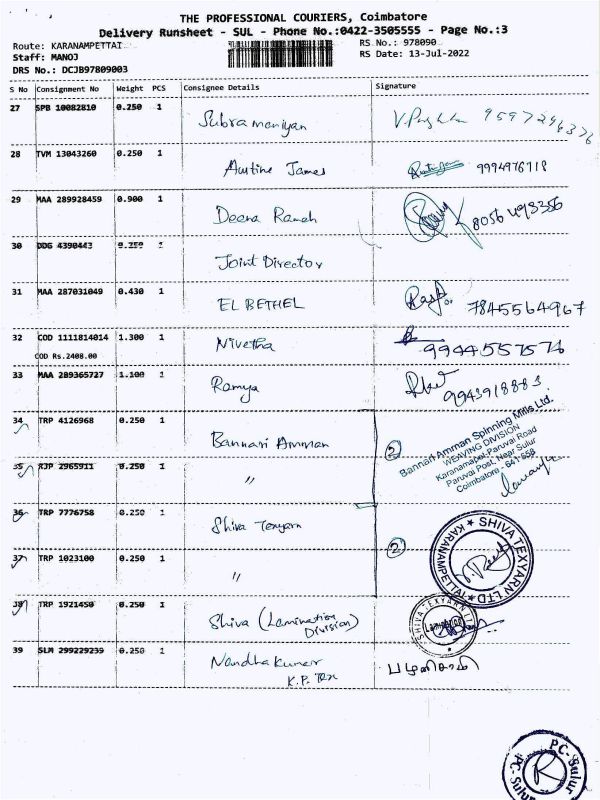 THE PROFESSIONAL COURIERS, Coimbatore
Delivery Runsheet - SUL - Phone No.:0422-3505555 - Page No.:3
Route: KARANAMPETTAI RS No.: 978090
Staff: MANOJ RS Date: 13-Jul-2022
DRS No.: DCJB97809003
S No Consignment No Weight PCS Consignee Details Signature
27 SPB 10082810 0.250 1 Subramaniyan 9597296376
28 TVM 13043260 0.250 1 James 9994976718
29 MAA 289928459 0.900 1 Deena 8056498356
30 DDG 4390443 0.250 1 Joint Director
31 MAA 287031049 0.430 1 EL BETHEL 7845564967
32 COD 1111814014 1.300 1 Nivetha 9944557576
COD Rs.2408.00
33 MAA 289365727 1.100 1 Ramya 9943918883
34 TRP 4126968 0.250 1 Bannari Amman 2
Bannari Amman Spinning Mills Ltd.
WEAVING DIVISION
Karanamapet-Paruvai Road
Paruvai Post, Near Sulur
Coimbatore - 641 658
35 RJP 2965911 0.250 1 "
36 TRP 7776758 0.250 1 Shiva Texyarn 2
SHIVA TEXYARN LTD
KARANAMPETTAI
37 TRP 1023100 0.250 1 "
38 TRP 1921450 0.250 1 Shiva (Lamination
Division)
SHIVA TEXYARN LTD
Lamination
39 SLM 299229239 0.250 1 Nandhakumar பழனிசாமி
K.P. Tex
PC-Sulur
R
PC-Sulur